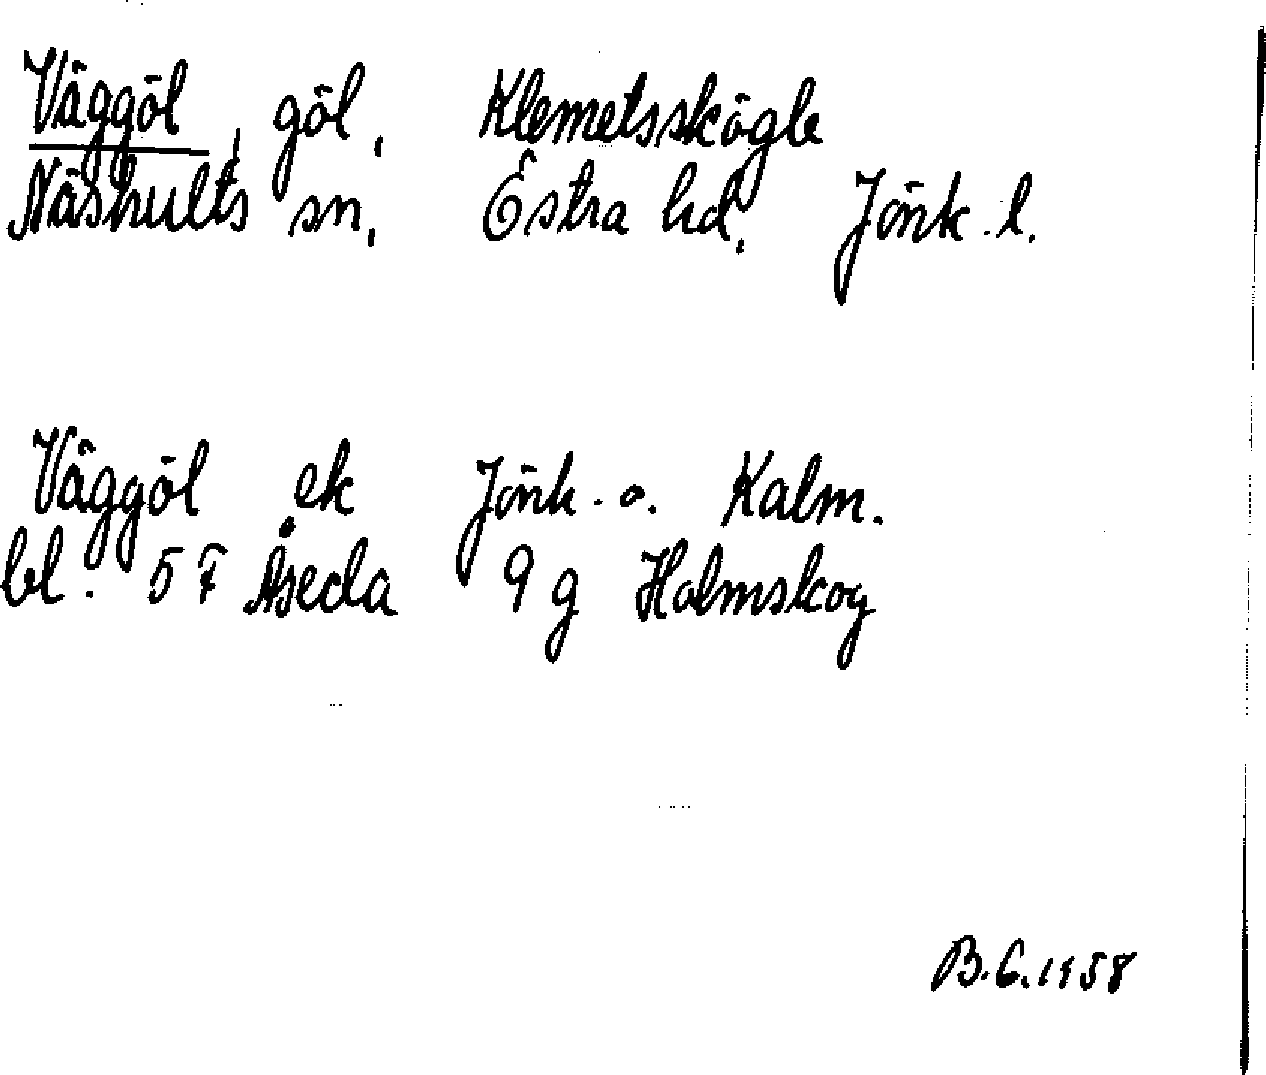 Väggöl, göl, Klemetsskögle
Näshults sn, Östra hd, Jönk. l.
Väggöl ek Jönk. o. Kalm.
bl. 5 F Åseda 9 g Holmskog
B.G. 1958